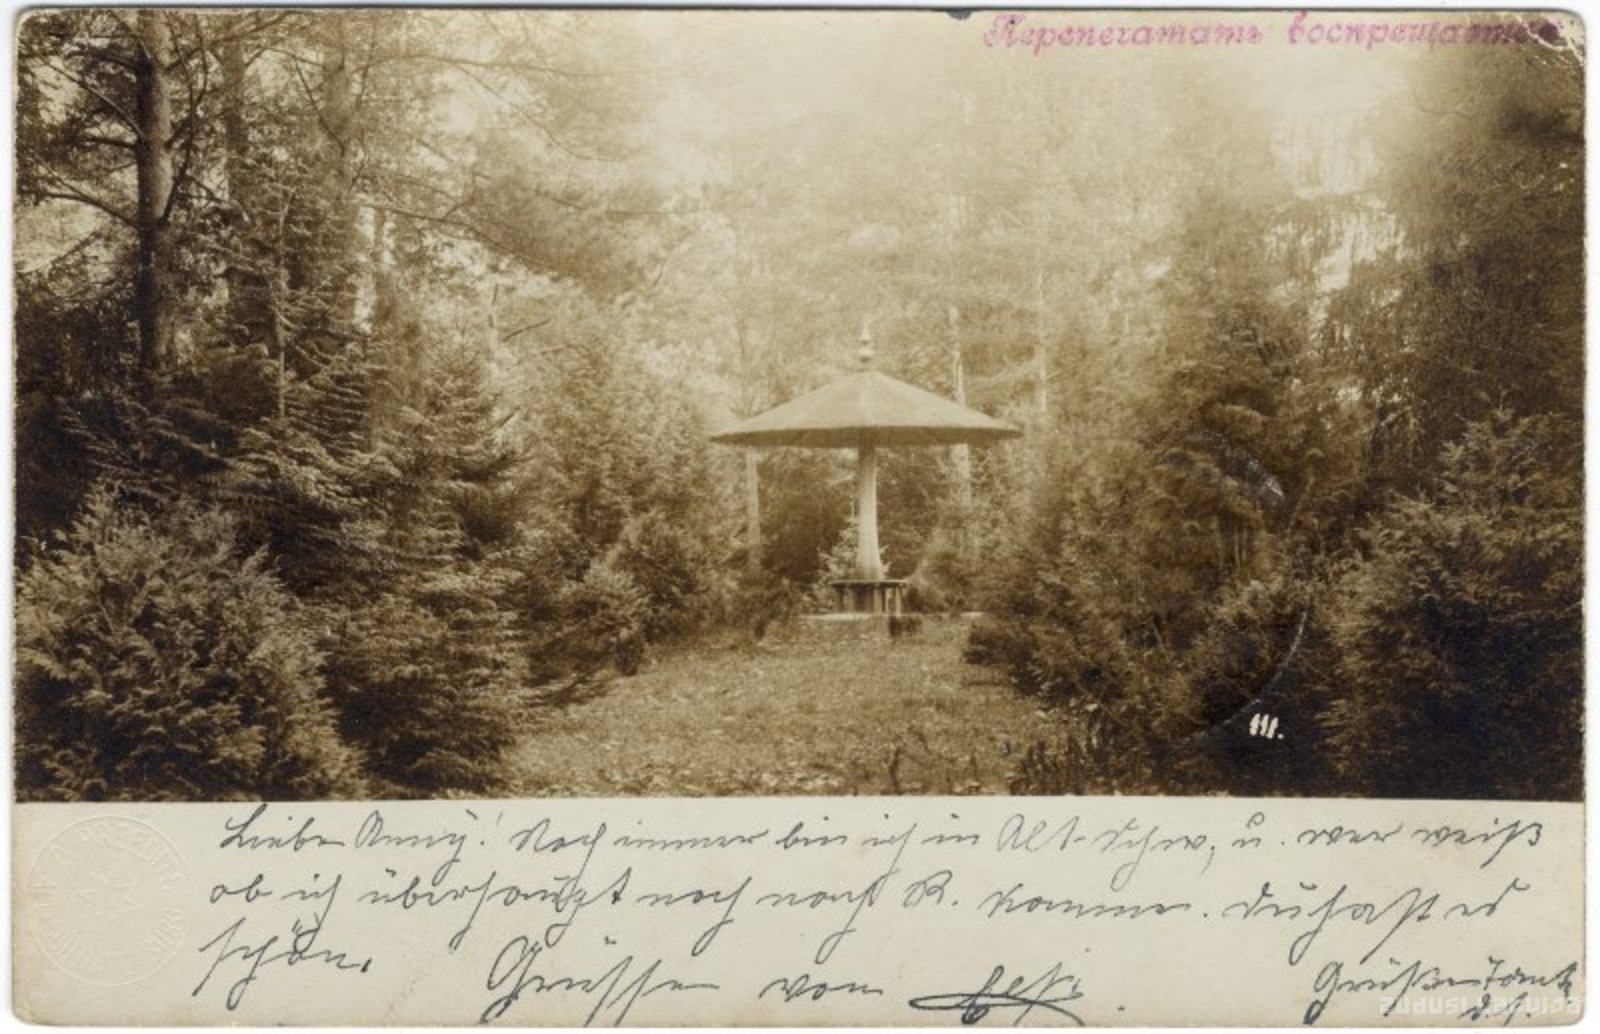 Перепечатать воспрещается
III.
Liebe Anny! Noch immer bin ich in Alt-Schw, u. wer weiß
ob ich überhaupt noch nach R. komme. Du hast es
schön.
Grüssen von
Grüße Tante